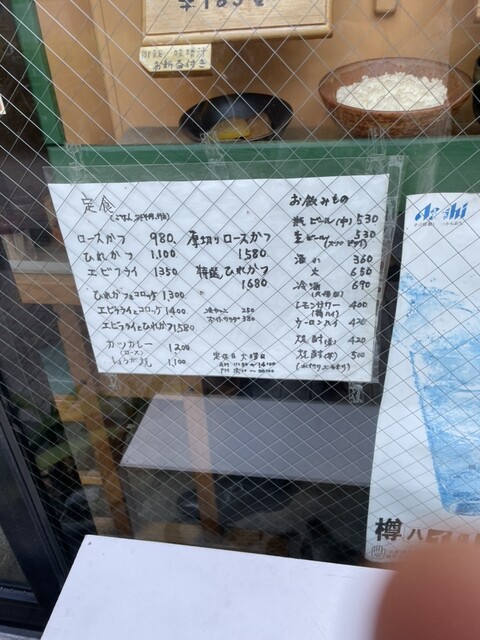 お新香付き
定食
お飲みもの
ロースかつ 980
ひれかつ 1.100
エビフライ 1350
ひれかつとコロッケ 1300
エビフライとコロッケ 1400
エビフライとひれかつ 1580
カツカレー 1200
(ロース)
しょうが焼 1,100
厚切りロースかつ
1580
特選ひれかつ
1680
250
380
定休日 火曜日
瓶ビール(中) 530
生ビール 530
酒 小 360
大 650
冷酒 690
レモンサワー 400
ウーロンハイ 420
焼酎 420
焼酎 500
Asahi
樽ハイ